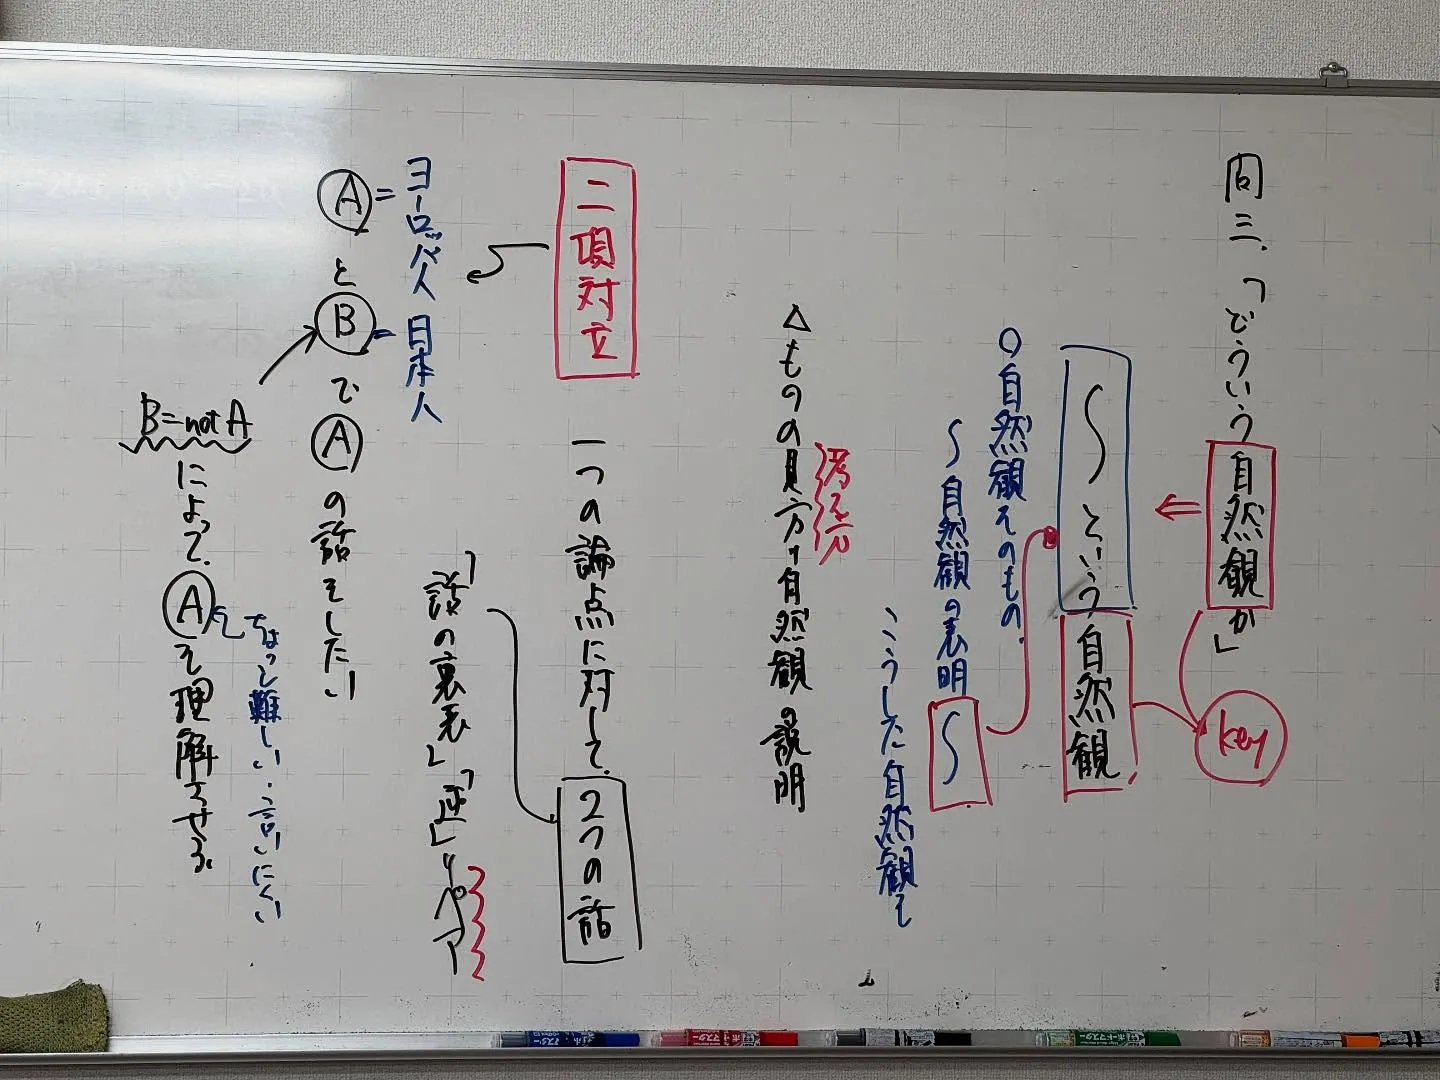 問三.「どういう自然観か」
key
〜という自然観
〇自然観そのもの.
〜自然観の表明〜
こうした自然観を
考え方
△ものの見方=自然観の説明
二項対立
一つの論点に対して、2つの話
「話の裏表」「逆」=ペア
ヨーロッパ人 日本人
A=とB=でAの話をしたい
ちょっと難しい・言いにくい
B=not AによってAを理解させる.
ボードマスター